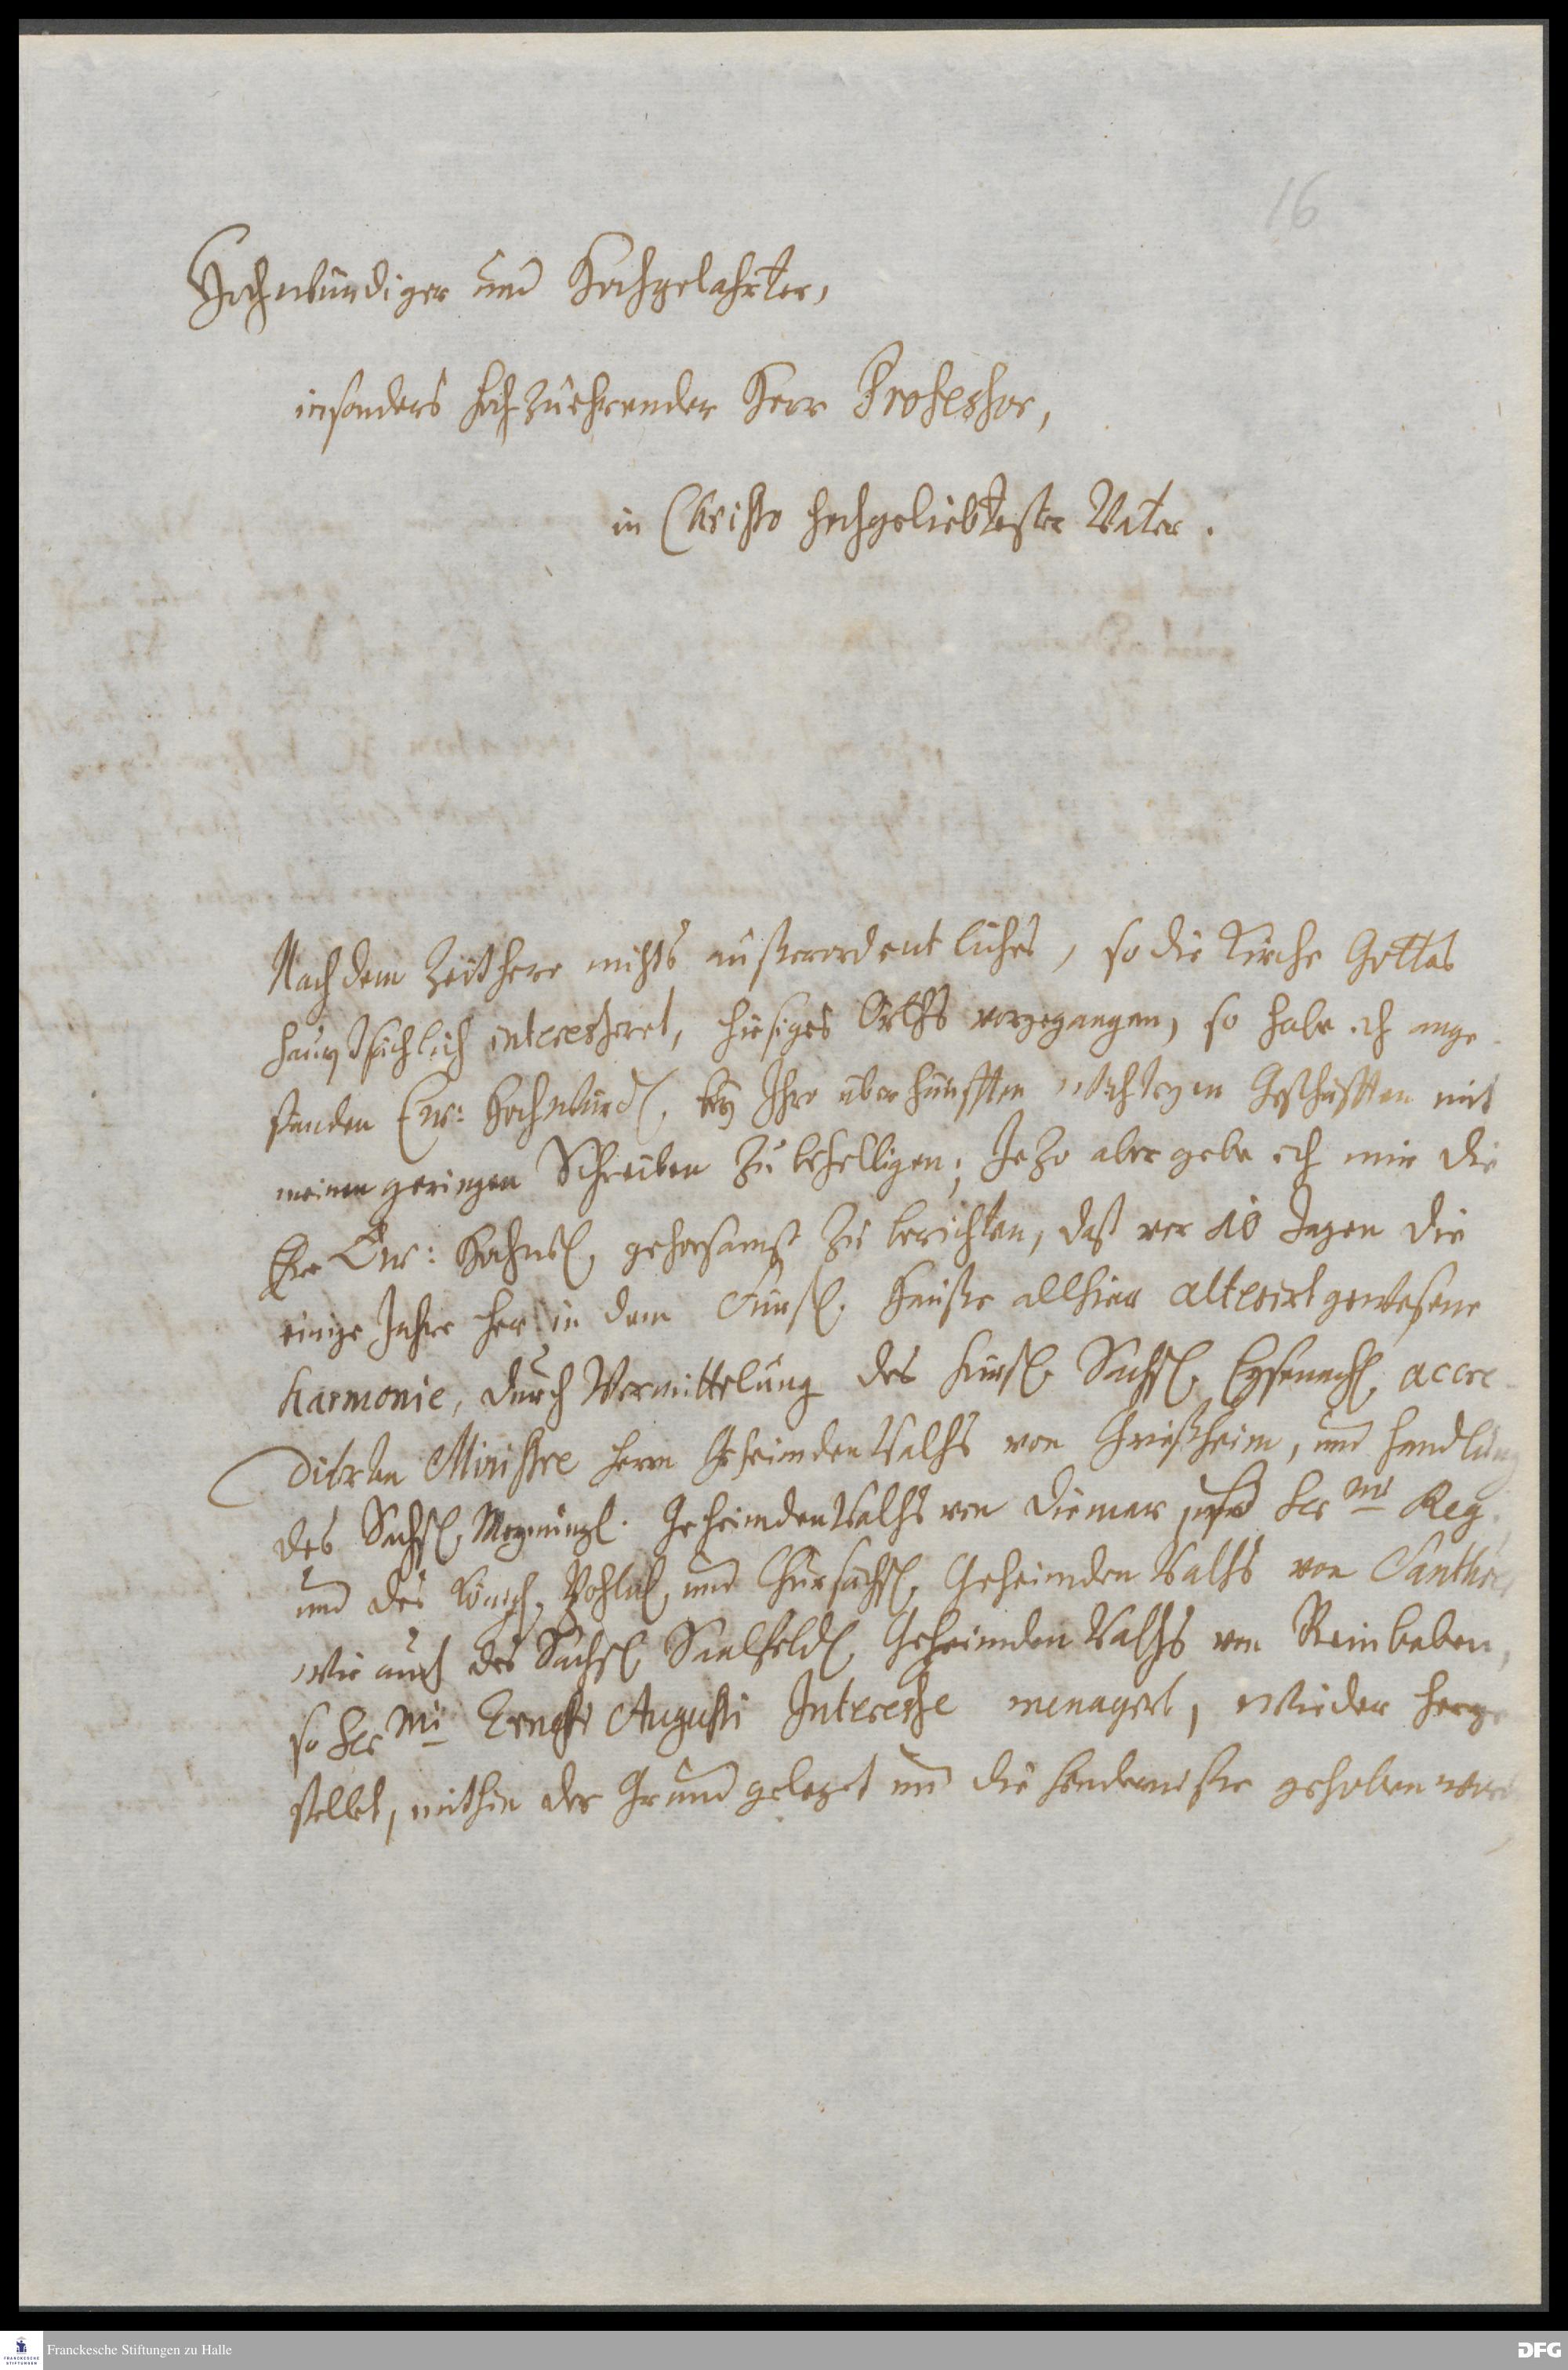 16
Hochwürdiger und Hochgelahrter,
insonders hochzuehrender Herr Professor,
in Christo hochgeliebtester Vater.
Nachdem Zeithero nichts außerordentliches, so die Kirche Gottes
hauptsächlich interessiret, hiesiges Orths vorgegangen, so habe ich ange-
standen Ew: Hochwürdl, bey Ihro überhäufften wichtigen Geschäfften mit
meinen geringen Schreiben zu behelligen; Jezo aber gebe ich mir die
Ehre Ew: Hochwl, gehorsamst zu berichten, daß vor 10 Tagen die
einige Jahre her in dem Fürstl. Hauße allhier alterirt gewesene
Harmonie, durch Vermittelung des Fürstl. Sächs. Eysenachl, accre-
ditirten Ministre Herrn Geheimden Raths von Grießheim, und Handlung
des Sächs. Meyningl. Geheimden Raths von Diemar Ser.mi Reg.
und des Königl. Pohlnl, und Chursächs. Geheimden Raths von
wie auch des Sächs. Saalfeldl, Geheimden Raths von Reinbaben,
so Ser.mi Ernesti Augusti Interesse menagirt, wieder herge
stellet, mithin der Grund geleget und die Hinderniße gehoben
Franckesche Stiftungen zu Halle
FRANCKESCHE STIFTUNGEN
DFG